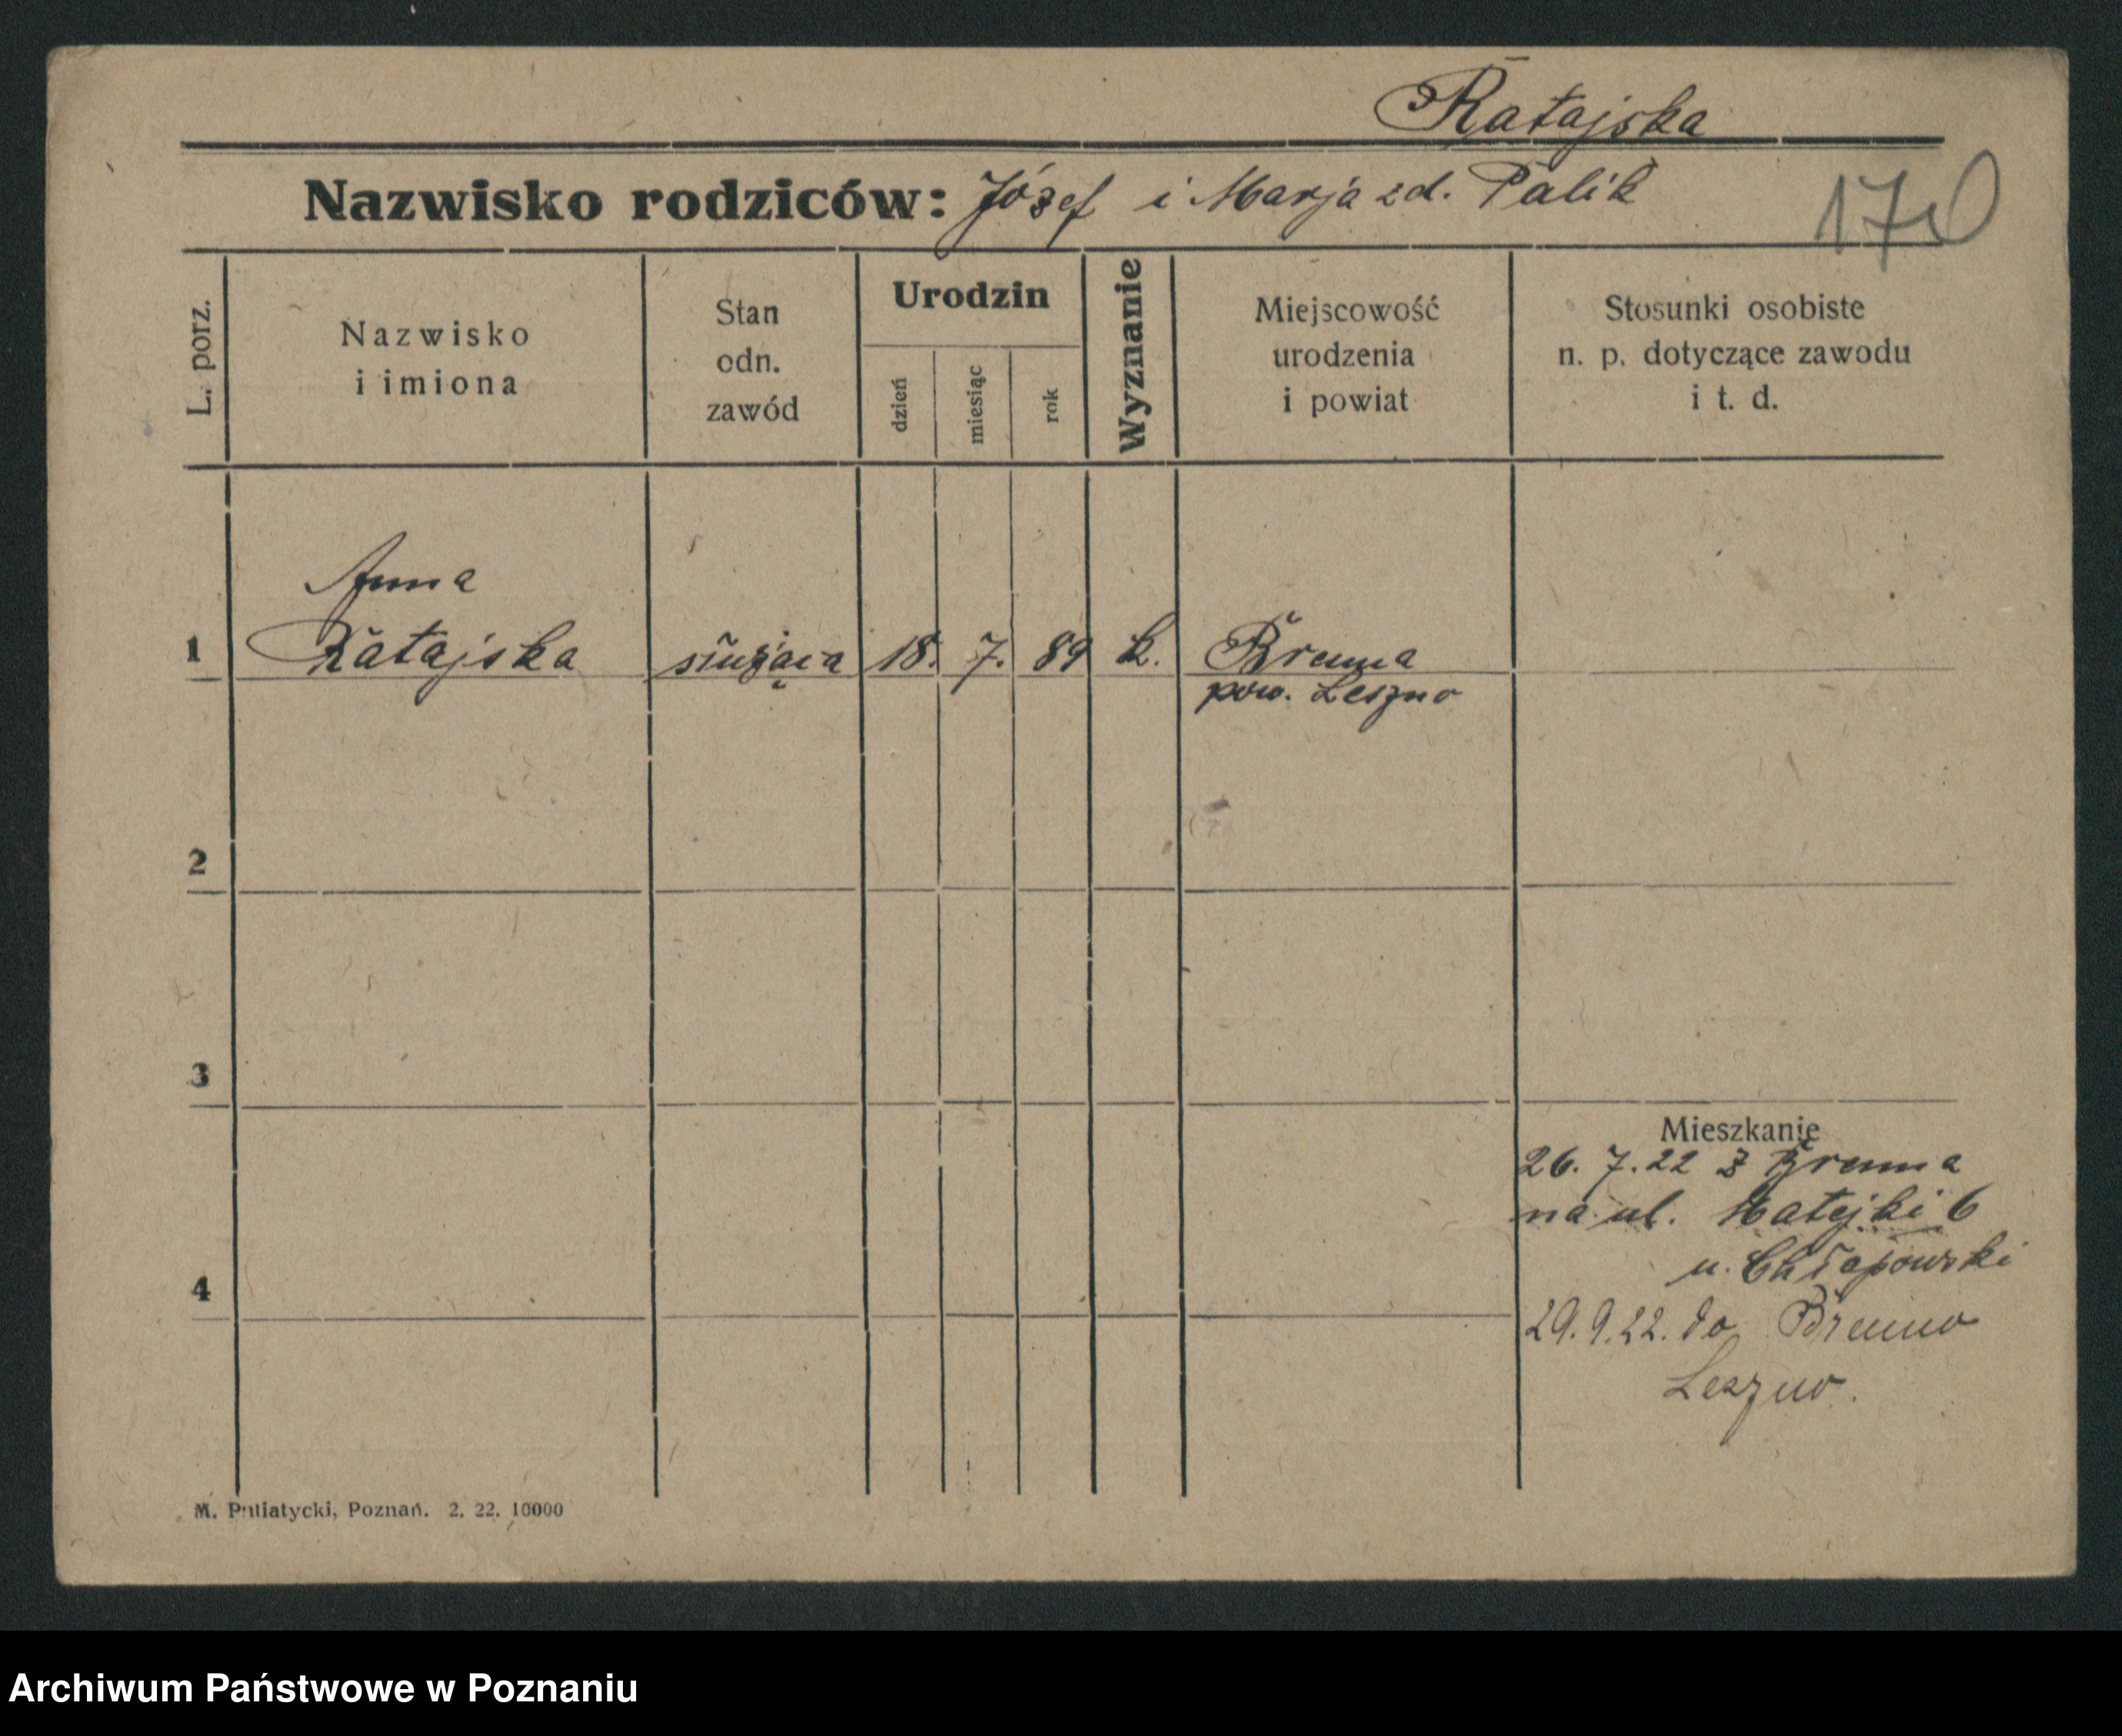 Ratajska
Nazwisko rodziców: Józef i Marja zd. Palik
170
L. porz.
Nazwisko
i imiona
Stan
odn.
zawód
Urodzin
dzień
miesiąc
rok
Wyznanie
Miejscowość
urodzenia
i powiat
Stosunki osobiste
n. p. dotyczące zawodu
i t. d.
Anna
1 Ratajska służąca 18. 7. 89 k. Brenna
pow. Leszno
2
3
Mieszkanie
26. 7. 22 z Brenna
na ul. Matejki 6
u. Chłapowski
4
29. 9. 22. do Brenno
Leszno.
M. Putiatycki, Poznań. 2. 22. 10000
Archiwum Państwowe w Poznaniu